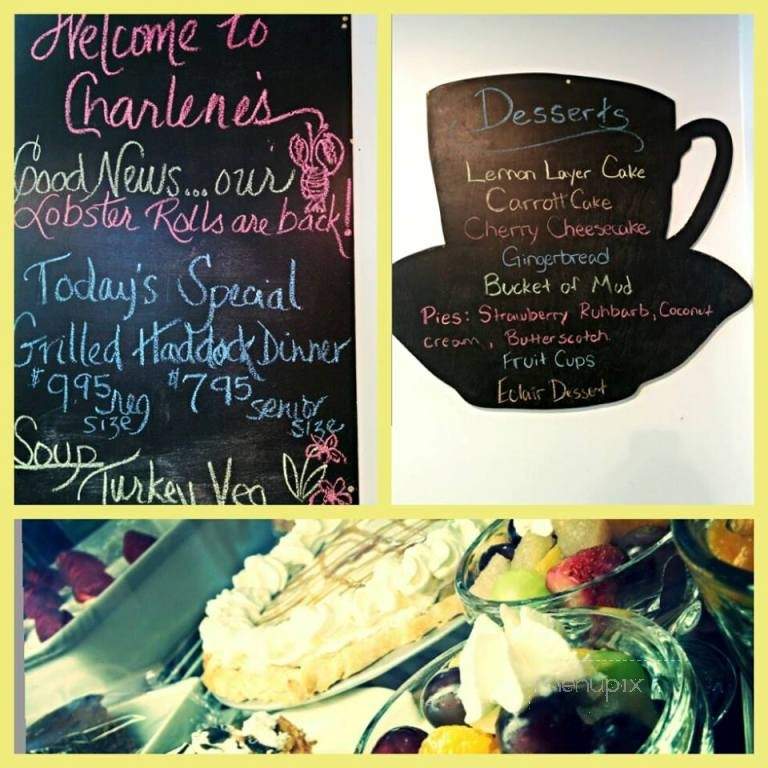 Welcome to
Charlene's
Good News... our
Lobster Rolls are back!
Today's Special
Grilled Haddock Dinner
$9.95 reg size $7.95 senior size
Soup
Turkey Veg
Desserts
Lemon Layer Cake
Carrott Cake
Cherry Cheesecake
Gingerbread
Bucket of Mud
Pies: Strawberry Ruhbarb, Coconut
cream, Butterscotch
Fruit Cups
Eclair Dessert
menupix